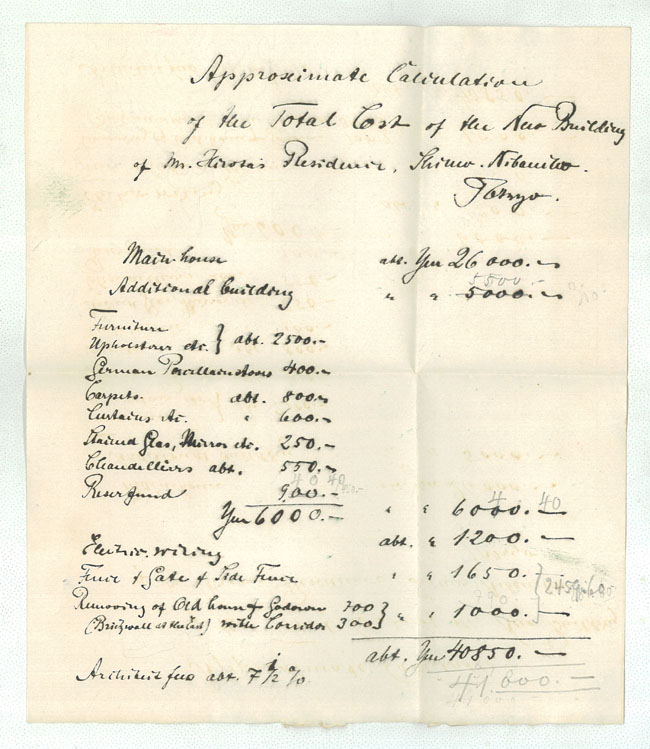 Approximate Calculation
of the Total Cost of the New Building
of Mr. Hirota's Residence, Shimo-Nibancho.
Tokyo.
Main-house abt. Yen 26000.-
5500.-
Additional building " " 5000.-
Furniture
Upholsterer etc. } abt. 2500.-
German Porcellainstoves 400.-
Carpets abt. 800.-
Curtains etc. " 600.-
Stained Glas, Mirror etc. 250.-
Chandelliers abt. 550.-
40 40
Reserfund 900.-
4 40
Yen 6000.- " " 6000.-
Electric-wiring abt. " 1200.-
Fence & Gate & Side Fence " " 1650.-
790.-
Removing of Old house & Godown 700
(Brickwall at the) with Corridor 300 } " " 1000.-
abt. Yen 40850.-
41.600.-
Architect fees abt. 7 1/2 %